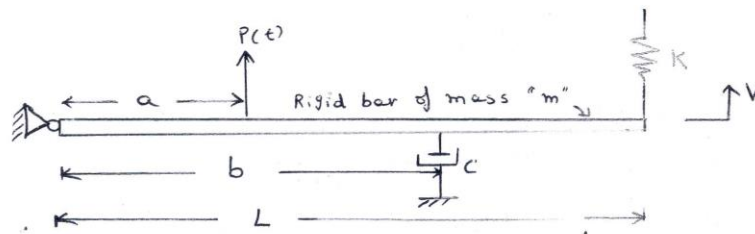 P(t)
K
a
Rigid bar of mass "m"
V
b
C
L